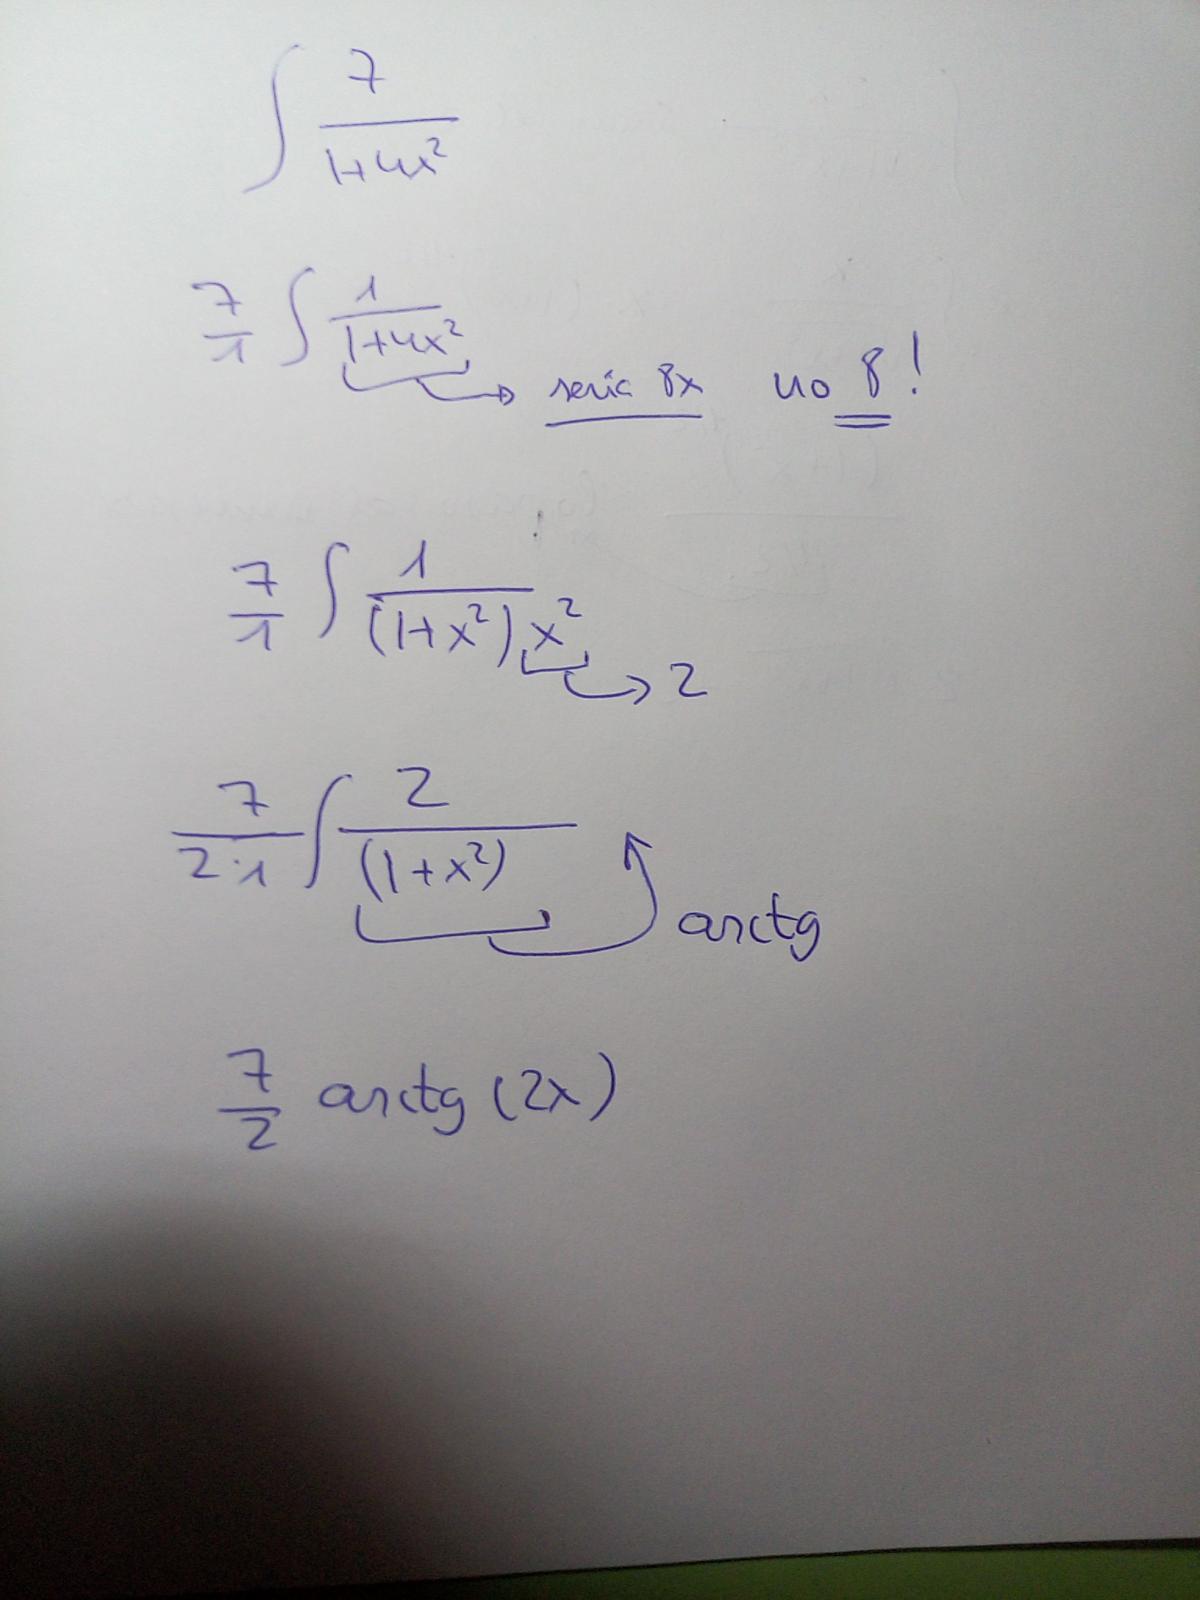 ∫ 7/(1+4x²)
7/1 ∫ 1/(1+4x²) → seria 8x no 8!
7/1 ∫ 1/((1+x²)x²) → 2
7/(2·1) ∫ 2/(1+x²) arctg
7/2 arctg (2x)